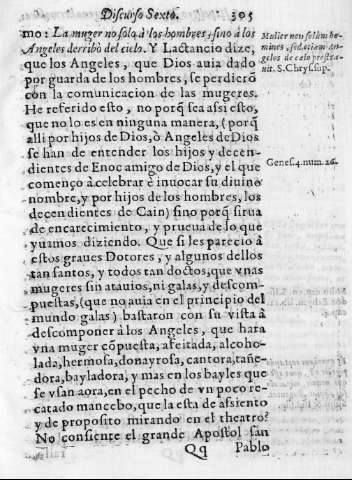 Discurso Sexto. 305
mo: La muger no solo à los hombres, sino à los
Angeles derribò del cielo. Y Lactancio dize,
que los Angeles, que Dios auia dado
por guarda de los hombres, se perdierõ
con la comunicacion de las mugeres.
He referido esto, no porq̃ sea assi esto,
que no lo es en ninguna manera, (porq̃
alli por hijos de Dios, ò Angeles de Dios
se han de entender los hijos y decen-
dientes de Enoc amigo de Dios, y el que
començo à celebrar è inuocar su diuino
nombre, y por hijos de los hombres, los
decendientes de Cain) sino porq̃ sirua
de encarecimiento, y prueua de lo que
yuamos diziendo. Que si les parecio à
estos graues Dotores, y algunos dellos
tan santos, y todos tan doctos, que vnas
mugeres sin atauios, ni galas, y descom-
puestas, (que no auia en el principio del
mundo galas) bastaron con su vista à
descomponer à los Angeles, que hara
vna muger cõpuesta, afeitada, alcoho-
lada, hermosa, donayrosa, cantora, tañe-
dora, bayladora, y mas en los bayles que
se vsan aora, en el pecho de vn poco re-
catado mancebo, que la esta de assiento
y de proposito mirando en el theatro?
No consiente el grande Apostol san
Qq Pablo
Mulier non solùm ho-
mines, sed etiam an-
gelos de cælo prostra-
uit. S. Chrys. sup.
Genes. 4. num. 26.